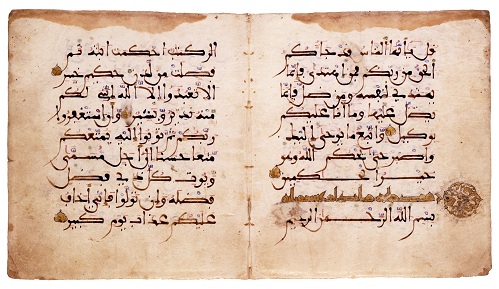 قل يأيها الناس قد جاكم
الحق من ربكم فمن اهتدى فإنما
يهتدي لنفسه ومن ضل فإنما
يضل عليها وما أنا عليكم
بوكيل واتبع ما يوحى إليك
واصبر حتى يحكم الله وهو
خير الحكمين
بسم الله الرحمن الرحيم
الر كتب احكمت ايته ثم
فصلت من لدن حكيم خبير
الا تعبدوا الا الله إنني لكم
منه نذير وبشير وأن استغفروا
ربكم ثم توبوا إليه يمتعكم
متعا حسنا إلى أجل مسمى
ويوت كل ذي فضل
فضله وإن تولوا فإني أخاف
عليكم عذاب يوم كبير